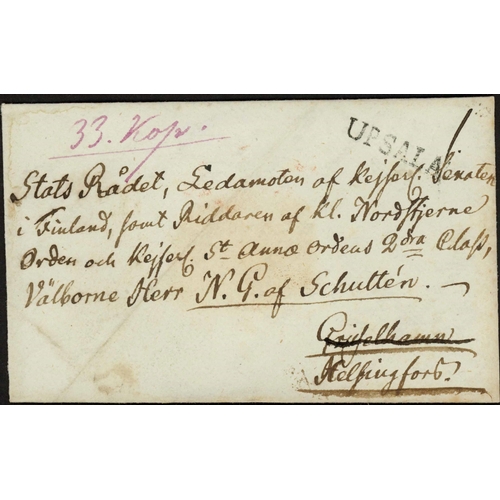 33. Kop.
UPSALA
Stats Rådet, Ledamoten af Kejserl. Senaten
i Finland, samt Riddaren af Kl. Nordstjerne
Orden och Kejserl. St Annæ Ordens 2dra Class,
Välborne Herr N. G. af Schultén.
Grisselhamn
Helsingfors.